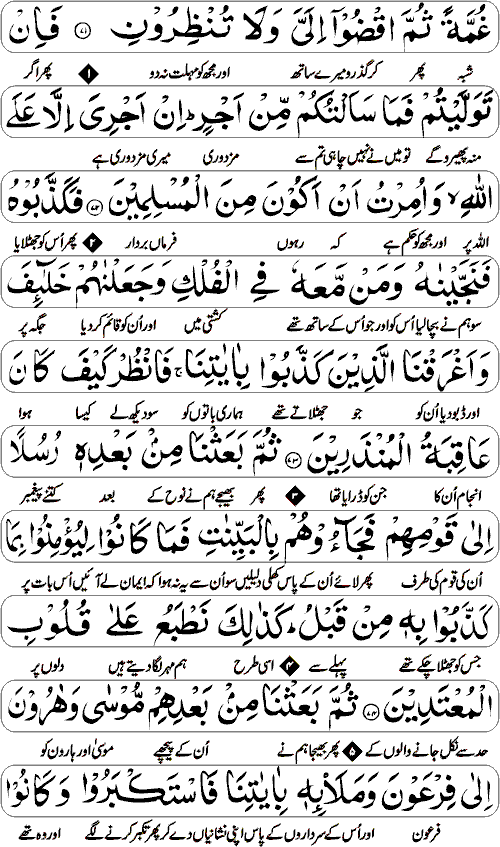 غُمَّةً ثُمَّ اقْضُوْٓا اِلَیَّ وَلَا تُنْظِرُوْنِ ﴿۷۱﴾ فَاِنْ
شبہ پھر کر گذرو میرے ساتھ اور مجھ کو مہلت نہ دو ۱ پھر اگر
تَوَلَّیْتُمْ فَمَا سَاَلْتُكُمْ مِّنْ اَجْرٍ ؕ اِنْ اَجْرِیَ اِلَّا عَلَی
منہ پھیرو گے تو میں نے نہیں چاہی تم سے مزدوری میری مزدوری ہے
اللّٰهِ ۙ وَاُمِرْتُ اَنْ اَكُوْنَ مِنَ الْمُسْلِمِیْنَ ﴿۷۲﴾ فَكَذَّبُوْهُ
اللہ پر اور مجھ کو حکم ہے کہ رہوں فرماں بردار ۲ پھر اُس کو جھٹلایا
فَنَجَّیْنٰهُ وَمَنْ مَّعَهٗ فِی الْفُلْكِ وَجَعَلْنٰهُمْ خَلٰٓئِفَ
سو ہم نے بچا لیا اُس کو اور جو اُس کے ساتھ تھے کشتی میں اور اُن کو قائم کر دیا جگہ پر
وَاَغْرَقْنَا الَّذِیْنَ كَذَّبُوْا بِاٰیٰتِنَا ۚ فَانْظُرْ كَیْفَ كَانَ
اور ڈبو دیا اُن کو جو جھٹلاتے تھے ہماری باتوں کو سو دیکھ لے کیسا ہوا
عَاقِبَةُ الْمُنْذَرِیْنَ ﴿۷۳﴾ ثُمَّ بَعَثْنَا مِنْۢ بَعْدِهٖ رُسُلًا
انجام اُن کا جن کو ڈرایا تھا ۳ پھر بھیجے ہم نے نوح کے بعد کتنے پیغمبر
اِلٰی قَوْمِهِمْ فَجَآءُوْهُمْ بِالْبَیِّنٰتِ فَمَا كَانُوْا لِیُؤْمِنُوْا بِمَا
اُن کی قوم کی طرف پھر لائے اُن کے پاس کھلی دلیلیں سو اُن سے یہ نہ ہوا کہ ایمان لے آئیں اُس بات پر
كَذَّبُوْا بِهٖ مِنْ قَبْلُ ؕ كَذٰلِكَ نَطْبَعُ عَلٰی قُلُوْبِ
جس کو جھٹلا چکے تھے پہلے سے ۴ اسی طرح ہم مہر لگا دیتے ہیں دلوں پر
الْمُعْتَدِیْنَ ﴿۷۴﴾ ثُمَّ بَعَثْنَا مِنْۢ بَعْدِهِمْ مُّوْسٰی وَهٰرُوْنَ
حد سے نکل جانے والوں کے ۵ پھر بھیجا ہم نے اُن کے پیچھے موسیٰ اور ہارون کو
اِلٰی فِرْعَوْنَ وَمَلَا۟ئِهٖ بِاٰیٰتِنَا فَاسْتَكْبَرُوْا وَكَانُوْا
فرعون اور اُس کے سرداروں کے پاس اپنی نشانیاں دے کر پھر تکبر کرنے لگے اور وہ تھے